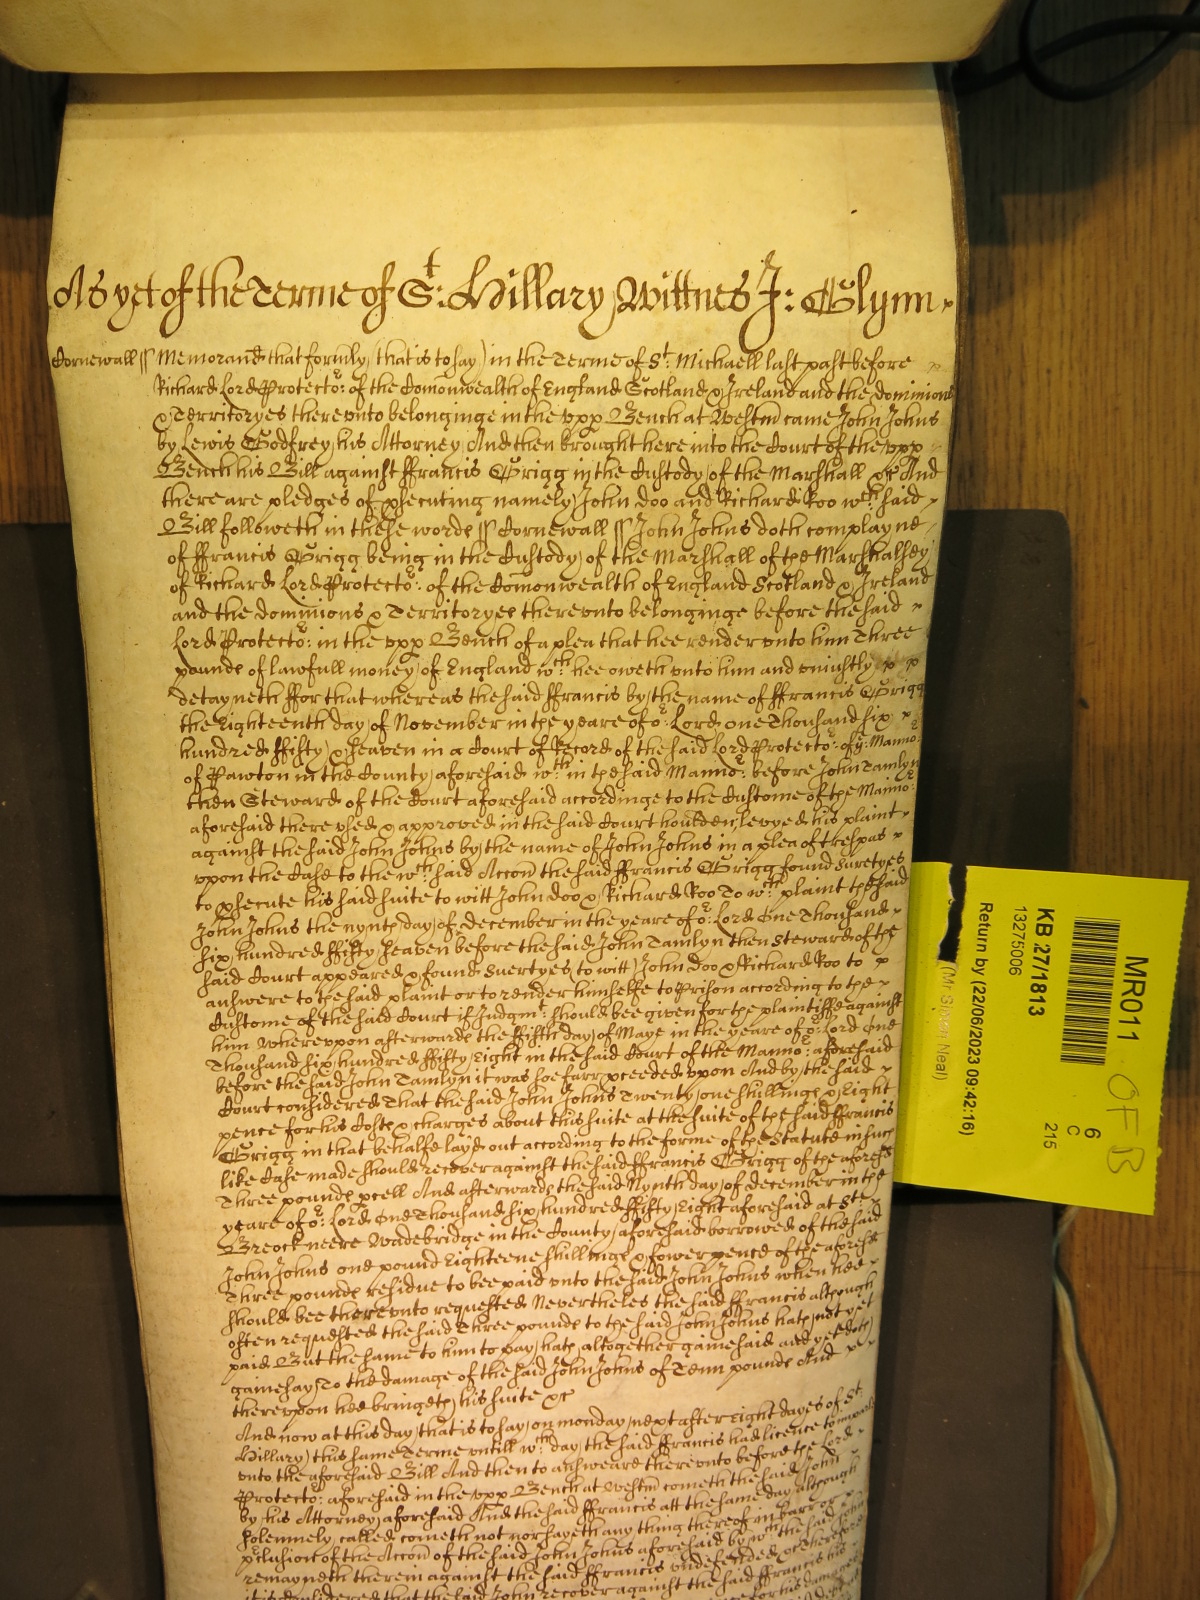 As yet of the Terme of St: Hillary Wittnes J: Glynn
Cornewall ss Memorand that formly (that is to say) in the Terme of St. Michaell last past before
Richard Lord Protector: of the Comonwealth of England Scotland & Ireland and the dominions
& Territoryes there vnto belonginge in the vpp Bench at Westm came John Johns
by Lewis Godfrey his Attorney And then brought here into the Court of the vpp
Bench his Bill against ffrancis Grigg in the Custody of the Marshall &c And
there are pledges of psecuting namely John Doo and Richard Roo wch said
Bill followeth in these words ss Cornewall ss John Johns doth complayne
of ffrancis Grigg being in the Custody of the Marshall of the Marshalsey
of Richard Lord Protector: of the Comonwealth of England Scotland & Ireland
and the dominions & Territoryes there vnto belonginge before the said
Lord Protector: in the vpp Bench of a plea that hee render vnto him Three
pounds of lawfull money of England wch hee oweth vnto him and vniustly
detayneth ffor that whereas the said ffrancis by the name of ffrancis Grigg
the Eighteenth day of November in the yeare of or Lord one Thousand six
hundred ffifty & seaven in a Court of Record of the said Lord Protector: of ye Manno:
of Pawton in the County aforesaid wth in the said Manno: before John Tamlyn
then Steward of the Court aforesaid accordinge to the Custome of the Manno:
aforesaid there vsed & approved in the said Court houlden, levyed his plaint
against the said John Johns by the name of John Johns in a plea of trespas
vpon the Case to the wch said Accon the said ffrancis Grigg found suretyes
to psecute his said suite to witt John doo & Richard Roo To wch plaint the said
John Johns the nynth day of december in the yeare of or: Lord One Thousand
six hundred ffifty seaven before the said John Tamlyn then Steward of the
said Court appeared & found suertyes to witt John Doo & Richard Roo to
answere to the said plaint or to render himselfe to Prison according to the
Custome of the said Court if Judgmt: should bee given for the plaintiffe against
him Wherevpon afterwards the ffifth day of Maye in the yeare of or: Lord One
Thousand six hundred ffifty Eight in the said Court of the Manno: aforesaid
before the said John Tamlyn it was soe farr pceeded vpon And by the said
Court considered That the said John Johns Twenty one shillings & Eight
pence for his Costs & charges about this suite at the suite of the said ffrancis
Grigg in that behalfe layd out according to the forme of the Statute in such
like Case made should recover against the said ffrancis Grigg of the aforesd
Three pounds pcell And afterwards the said Nynth day of december in the
yeare of or: Lord One Thousand six hundred ffifty Eight aforesaid at St:
Breock neere Wadebridge in the County aforesaid borrowed of the said
John Johns one pound Eighteene shillings & fower pence of the aforesd
Three pounds residue to bee paid vnto the said John Johns when hee
should bee therevnto requested Nevertheles the said ffrancis although
often requested the said Three pounds to the said John Johns hath not yet
paid But the same to him to pay hath altogether gainesaid and yet doth
gainesay, To the damage of the said John Johns of Tenn pounds And
therevpon hee bringeth his suite &c
And now at this day that is to say on monday next after Eight dayes of St.
Hillary this same Terme vntill wch day the said ffrancis had licence to imparle
vnto the aforesaid Bill And then to answeare therevnto before the Lord
Protector: aforesaid in the vpp Bench at Westm cometh the said John
by his Attorney aforesaid And the said ffrancis att the same day although
solemnely called cometh not nor sayeth any thing thereof in barr or
pclusion of the Accon of the said John Johns aforesaid by wch the said John
remayneth therein against the said ffrancis vndefended &c therefore
it is considered that the said John recover against the said ffrancis his
MR011
OFB
6
C
215
KB 27/1813
13275006
Return by (22/06/2023 09:42:16)
(Mr Simon Neal)